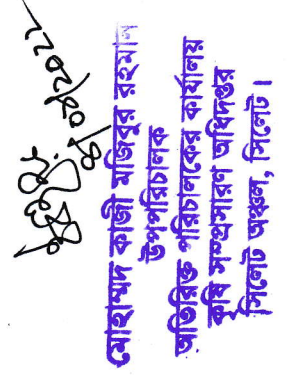 ০৪/০৪/২০২২
মোহাম্মদ কাজী মজিবুর রহমান
উপপরিচালক
অতিরিক্ত পরিচালকের কার্যালয়
কৃষি সম্প্রসারণ অধিদপ্তর
সিলেট অঞ্চল, সিলেট।